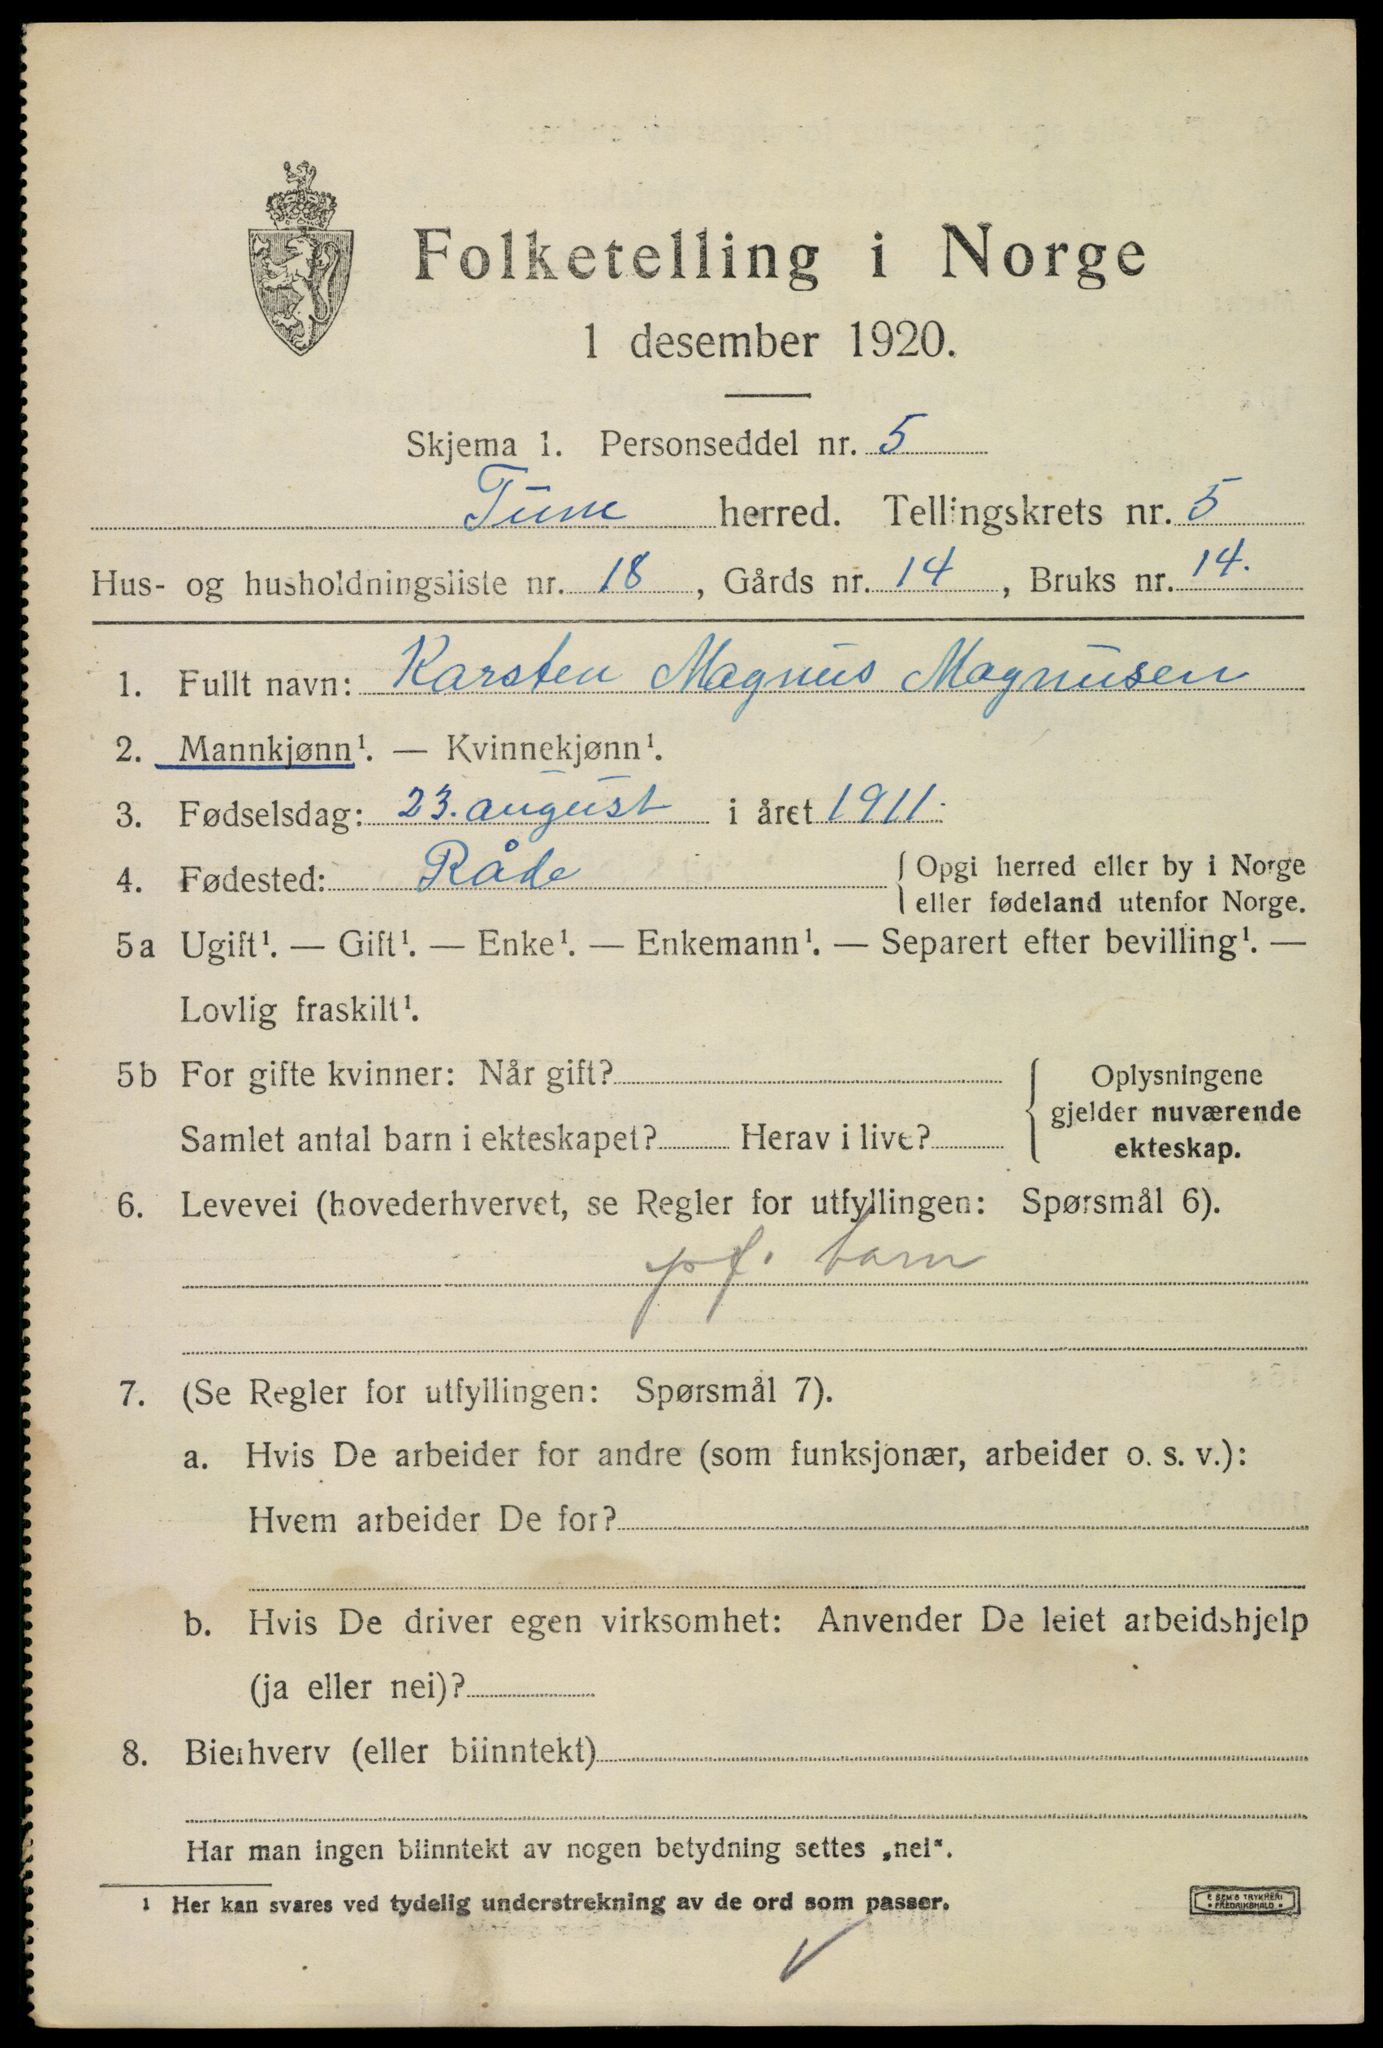 Folketelling i Norge
1 desember 1920.
Skjema 1. Personseddel nr. 5
Tune herred. Tellingskrets nr. 5
Hus- og husholdningsliste nr. 18, Gårds nr. 14, Bruks nr. 14.
1. Fullt navn: Karsten Magnus Magnusen
2. Mannkjønn¹. — Kvinnekjønn¹.
3. Fødselsdag: 23. august i året 1911.
4. Fødested: Råde { Opgi herred eller by i Norge
eller fødeland utenfor Norge.
5a Ugift¹. — Gift¹. — Enke¹. — Enkemann¹. — Separert efter bevilling¹. —
Lovlig fraskilt¹.
5b For gifte kvinner: Når gift? { Oplysningene
gjelder nuværende
Samlet antal barn i ekteskapet? Herav i live?
ekteskap.
6. Levevei (hovederhvervet, se Regler for utfyllingen: Spørsmål 6).
pf. barn
7. (Se Regler for utfyllingen: Spørsmål 7).
a. Hvis De arbeider for andre (som funksjonær, arbeider o. s. v.):
Hvem arbeider De for?
b. Hvis De driver egen virksomhet: Anvender De leiet arbeidshjelp
(ja eller nei)?
8. Bierhverv (eller biinntekt)
Har man ingen biinntekt av nogen betydning settes „nei".
1 Her kan svares ved tydelig understrekning av de ord som passer.
E. SEM'S TRYKKERI
• FREDRIKSHALD •